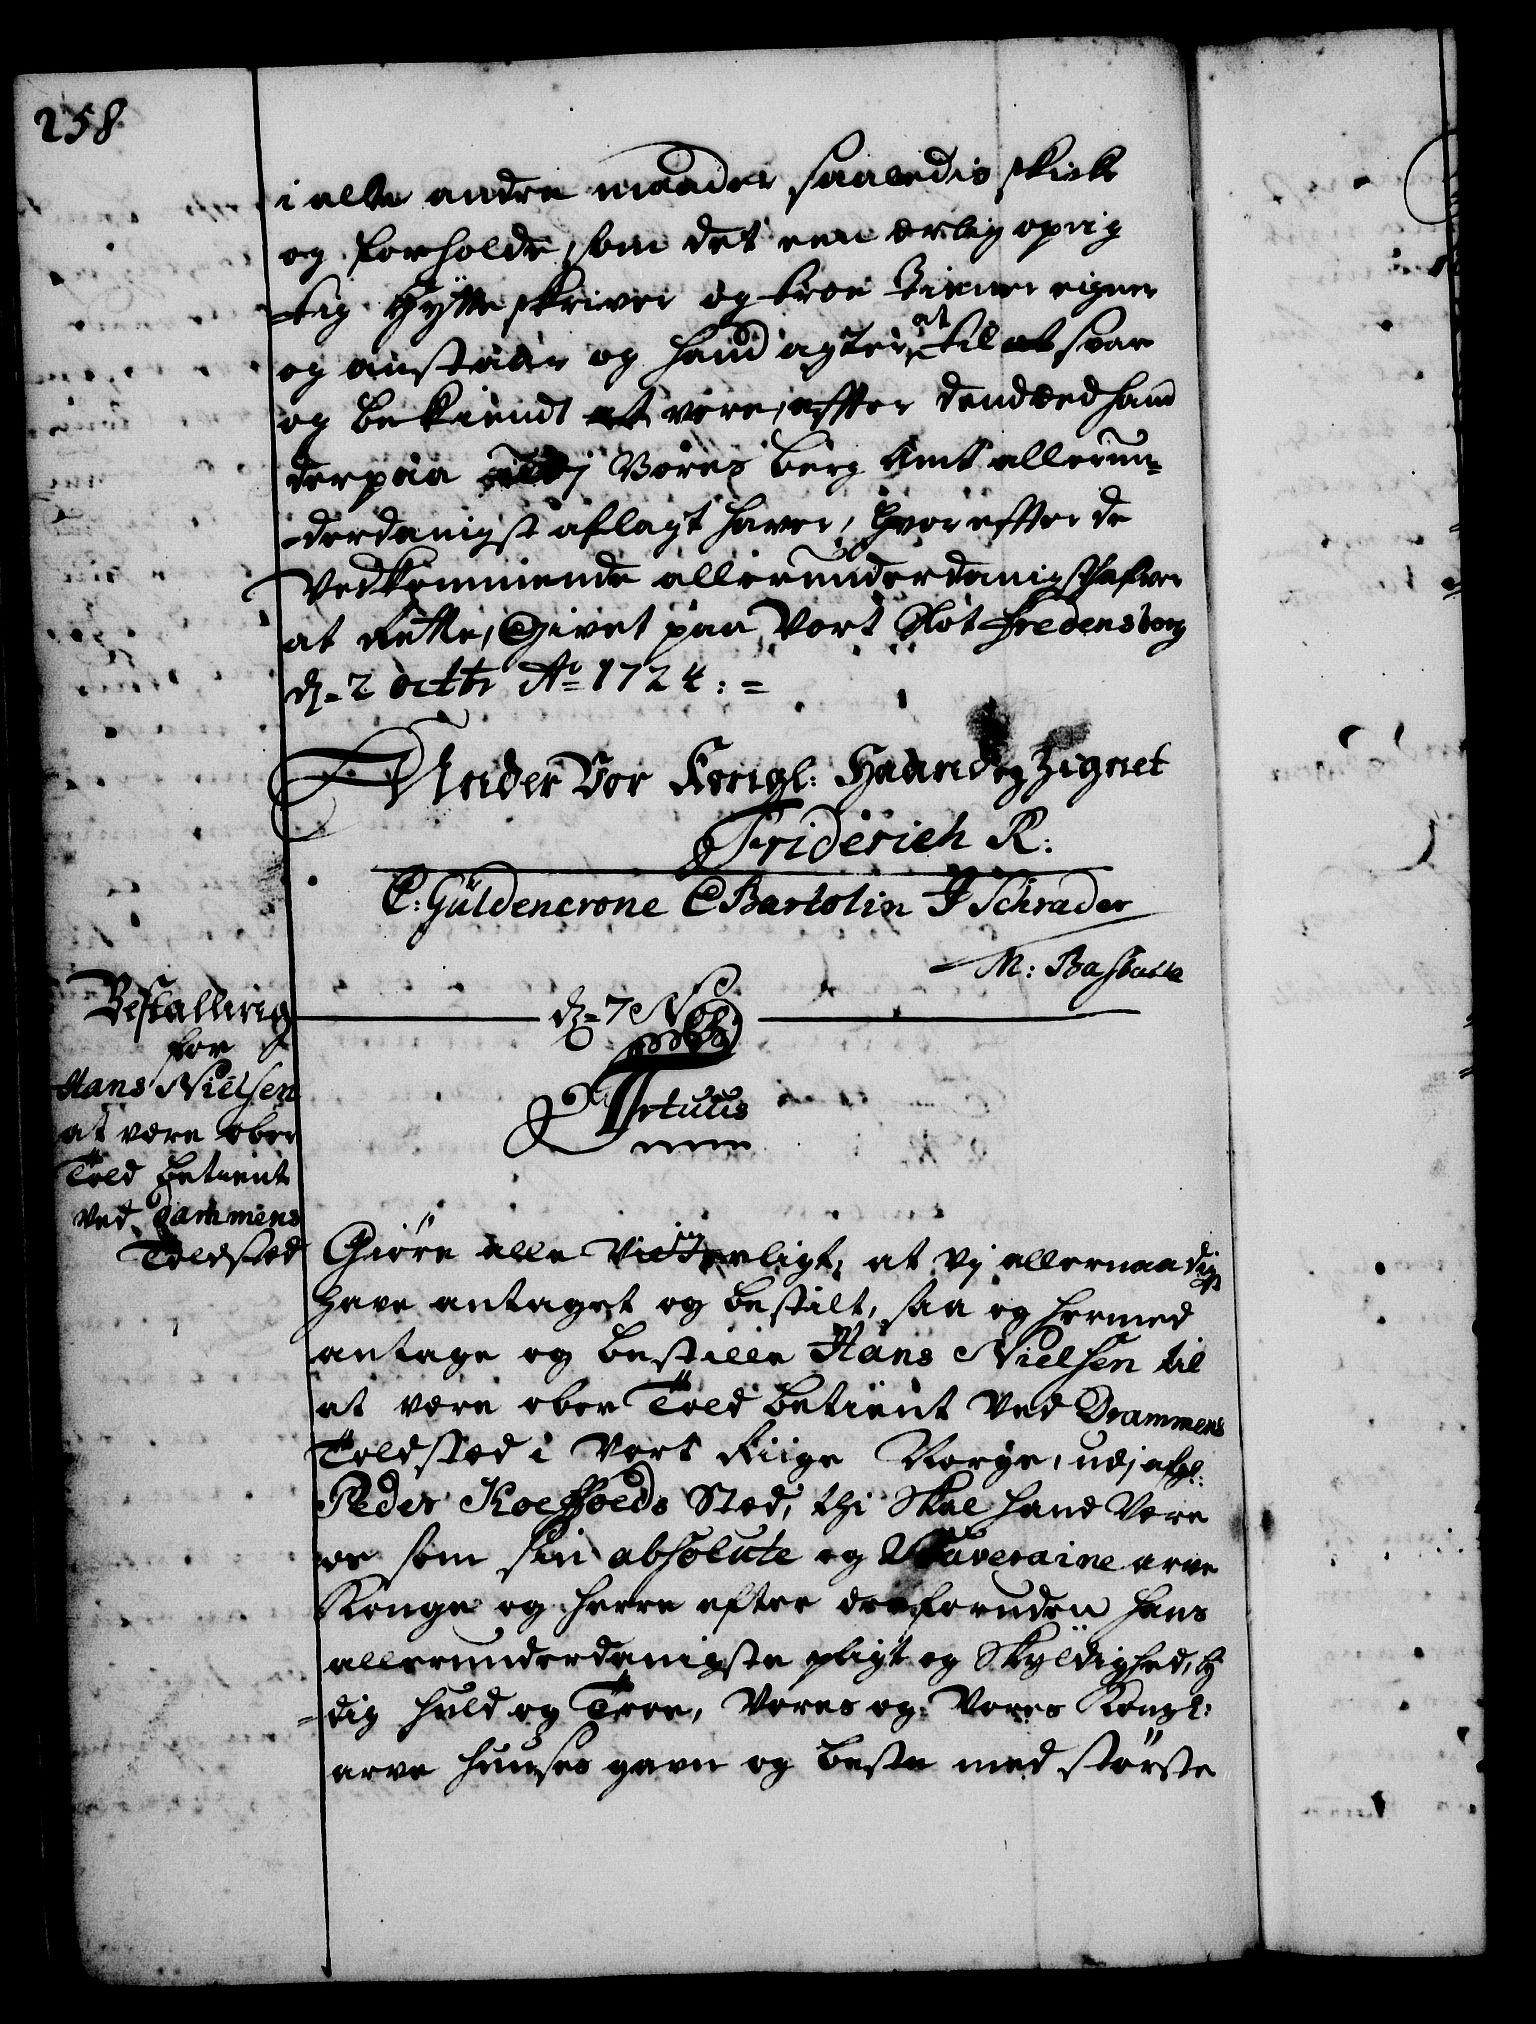 258
i alle andre maader saaledis skicke
og forholde, som det een ærlig oprig
tig Hytteskriver og troe Tienner eigner
og anstaar og hand agter at til at svare
og bekiendt at være, effter dend Eed hand
derpaa udj Vores Berg Amt allerun-
-derdanigst aflagt haver, Hvoreffter de
Vedkommende allerunderdanigst hafver
at Rette, Givet paa Vort Slot Fredensborg
dȝ 2 octbr Ao 1724: =
Under Vor Kongl: Haand og Zignet
Friderich R:
C: Güldencrone C Bartolin J Schrader
M: Basballe
Bestalling
for
Hans Nielsen
at være ober
Told betient
ved Dammens
Toldsted
dȝ 7 No
Friderich
Giøre alle Vitterligt, at Vj allernaadigst
have antaget og bestilt, saa og hermed
antage og bestille Hans Nielsen til
at være ober Told betient Ved Drammens
Toldsted i Vort Riige Norge, udj afgl:
Peder Koeffoeds Sted, thi Skal hand Være
os som sin absolute og Souveraine arve
Konge og Herre efter derforuden hans
allerunderdanigste pligt og Skyldighed, hul
dig huld og Troe, Vores og Vores Kongl:
arve Huuses gavn og beste med største